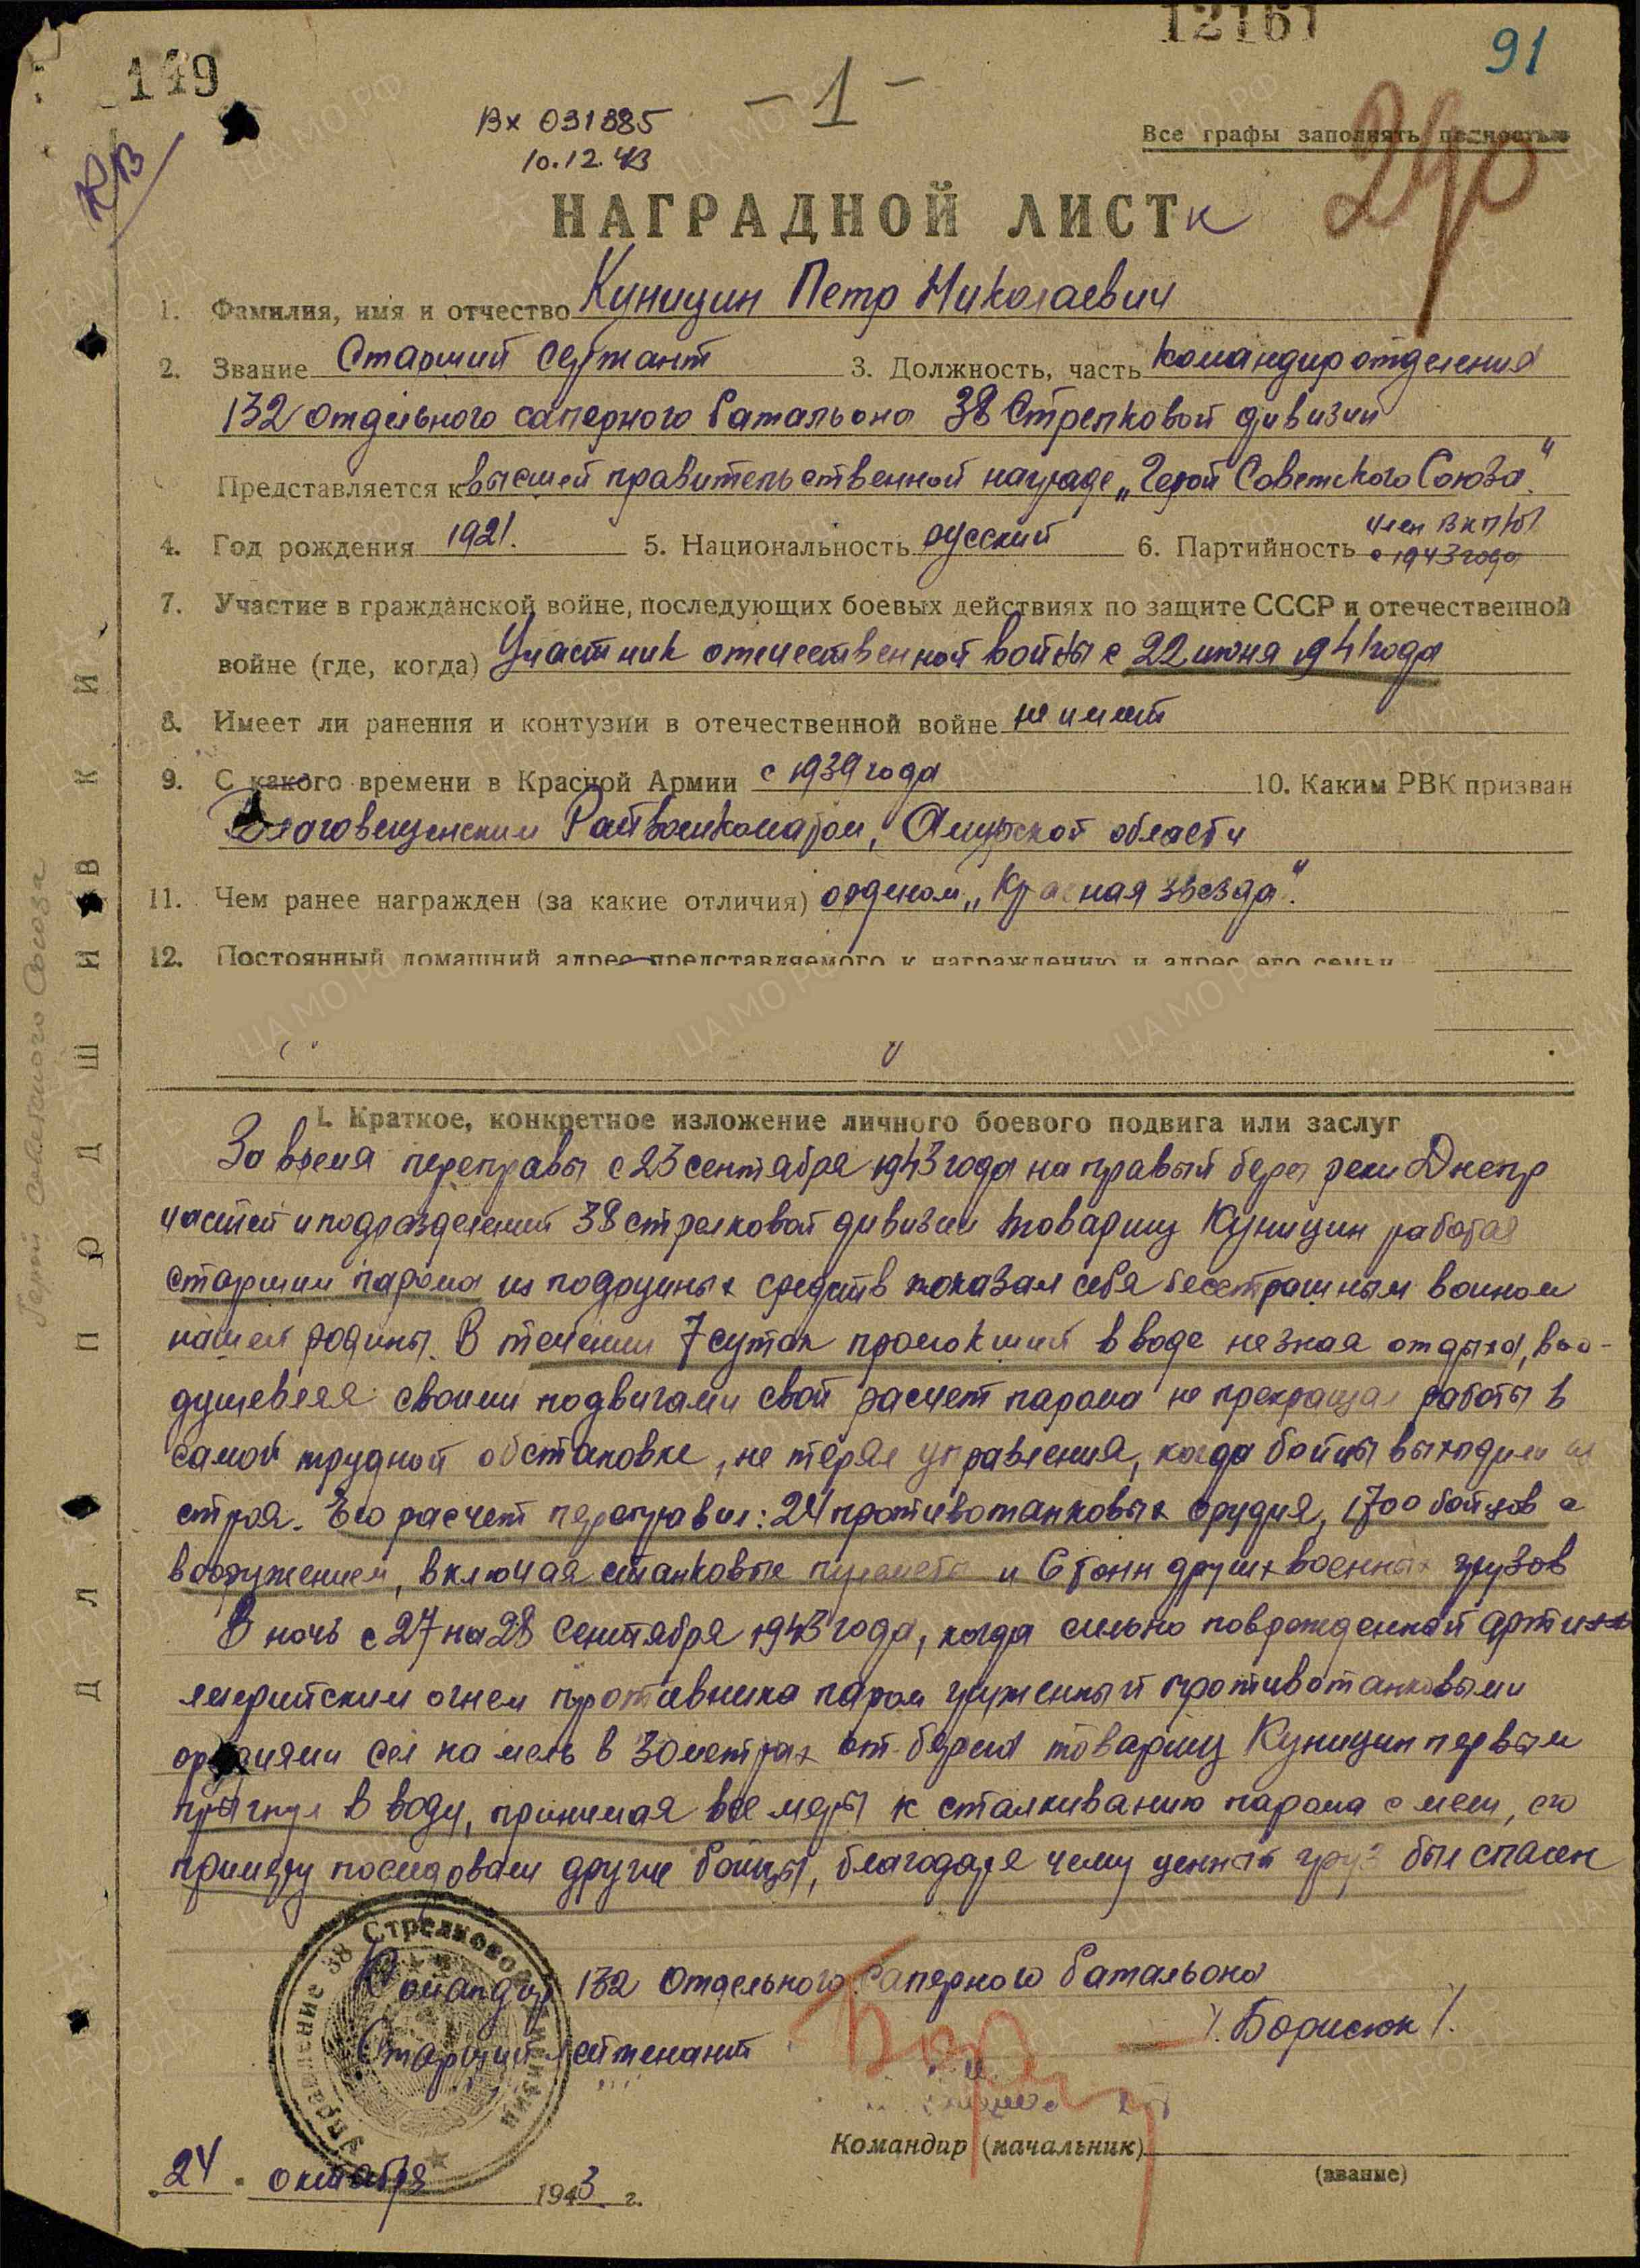 12161
91
149
- 1 -
Вх 031885
10.12.43
КВ
Все графы заполнять полностью
НАГРАДНОЙ ЛИСТ
1. Фамилия, имя и отчество Куницин Петр Николаевич
2. Звание Старший сержант 3. Должность, часть командир отделения
132 отдельного саперного батальона 38 Стрелковой дивизии
Представляется к высшей правительственной награде „Герой Советского Союза"
4. Год рождения 1921. 5. Национальность русский 6. Партийность член ВКП/б/
с 1943 года
7. Участие в гражданской войне, последующих боевых действиях по защите СССР и отечественной
войне (где, когда) Участник отечественной войны с 22 июня 1941 года
8. Имеет ли ранения и контузии в отечественной войне не имеет
9. С какого времени в Красной Армии с 1939 года 10. Каким РВК призван
Благовещенским Райвоенкоматом, Амурской области
11. Чем ранее награжден (за какие отличия) орденом „Красная звезда".
12. Постоянный домашний адрес представляемого к награждению и адрес его семьи
I. Краткое, конкретное изложение личного боевого подвига или заслуг
За время переправы с 23 сентября 1943 года на правый берег реки Днепр
частей и подразделений 38 стрелковой дивизии товарищ Куницин работая
старшим парома из подручных средств показал себя бесстрашным воином
нашей родины. В течении 7 суток промокший в воде не зная отдыха, воо-
душевляя своими подвигами свой расчет парома не прекращал работы в
самой трудной обстановке, не теряя управления, когда бойцы выходили из
строя. Его расчет переправил: 24 противотанковых орудия, 1700 бойцов с
вооружением, включая станковые пулеметы и 6 тонн других военных грузов
В ночь с 27 на 28 сентября 1943 года, когда сильно поврежденный артил-
лерийским огнем противника паром груженный противотанковыми
орудиями сел на мель в 30 метрах от берега товарищ Куницин первым
прыгнул в воду, принимая все меры к сталкиванию парома с мели, его
примеру последовали другие бойцы, благодаря чему ценный груз был спасен
Командир 132 Отдельного Саперного батальона
Старший лейтенант /Борисюк/.
Управление 38 Стрелковой дивизии
Командир (начальник)
(звание)
24 октября 1943 г.
ДЛЯ ПОДШИВКИ
Герой Советского Союза
ЦА МО РФ